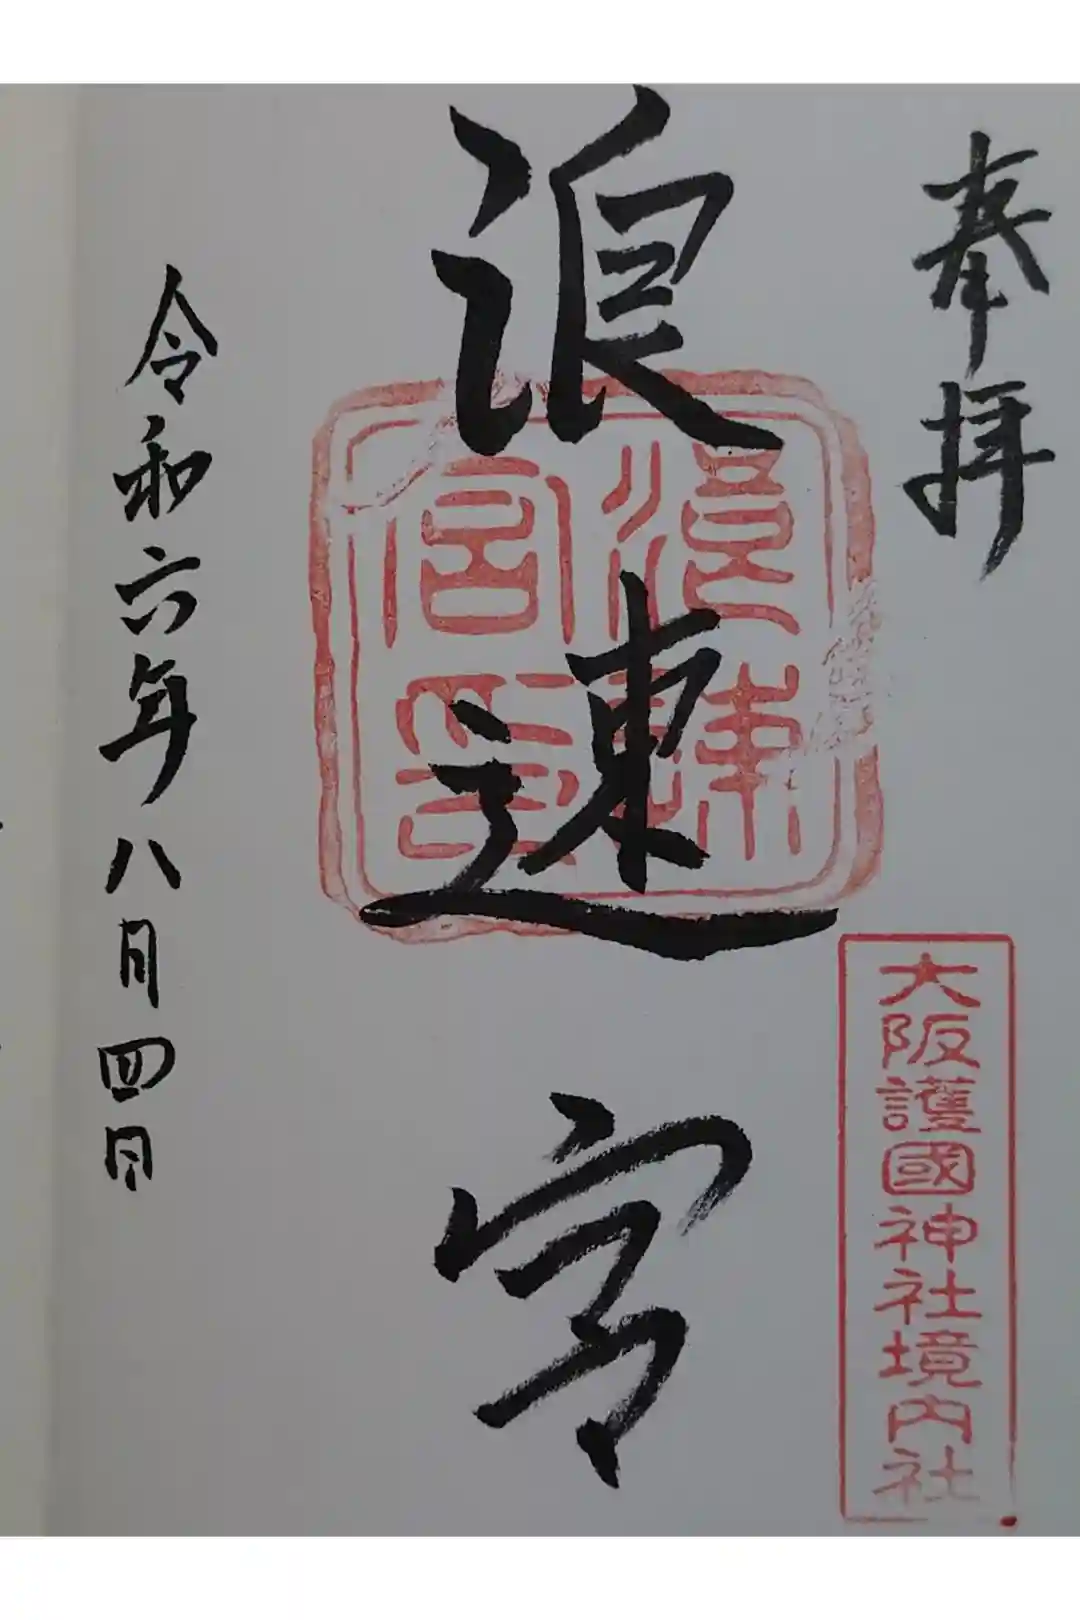 奉拝
大阪護國神社境内社
浪速宮
浪速宮印
令和六年八月四日